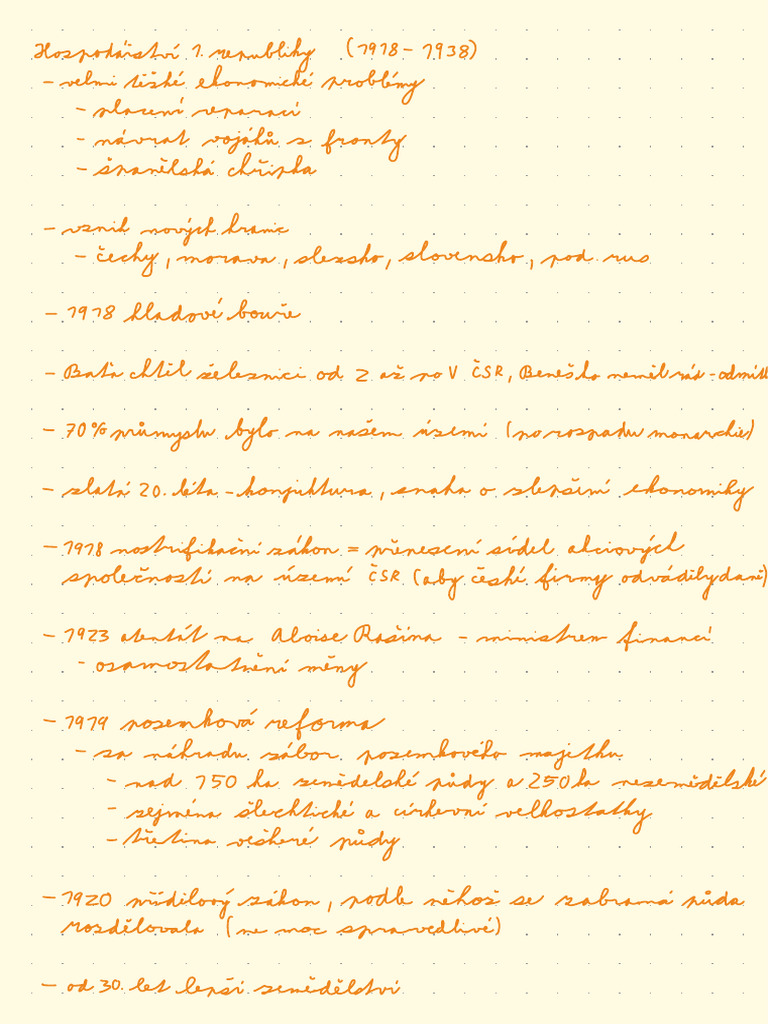 Hospodářství 1. republiky (1918 - 1938)
- velmi těžké ekonomické problémy
- placení reparací
- návrat vojáků z fronty
- španělská chřipka
- vznik nových hranic
- čechy, morava, slezsko, slovensko, pod. rus
- 1918 hladové bouře
- Baťa chtěl železnici od Z až po V ČSR, Beneš ho neměl rád - odmítl
- 70% průmyslu bylo na našem území (po rozpadu monarchie)
- zlatá 20. léta - konjuktura, snaha o zlepšení ekonomiky
- 1918 nostrifikační zákon = přenesení sídel akciových
společností na území ČSR (aby české firmy odváděly daně)
- 1923 atentát na Aloise Rašína - ministrem financí
- osamostatnění měny
- 1919 pozemková reforma
- za náhradu zábor pozemkového majetku
- nad 150 ha zemědělské půdy a 250 ha nezemědělské
- zejména šlechtické a církevní velkostatky
- třetina veškeré půdy
- 1920 přídělový zákon, podle něhož se zabraná půda
rozdělovala (ne moc spravedlivé)
- od 30. let lepší zemědělství